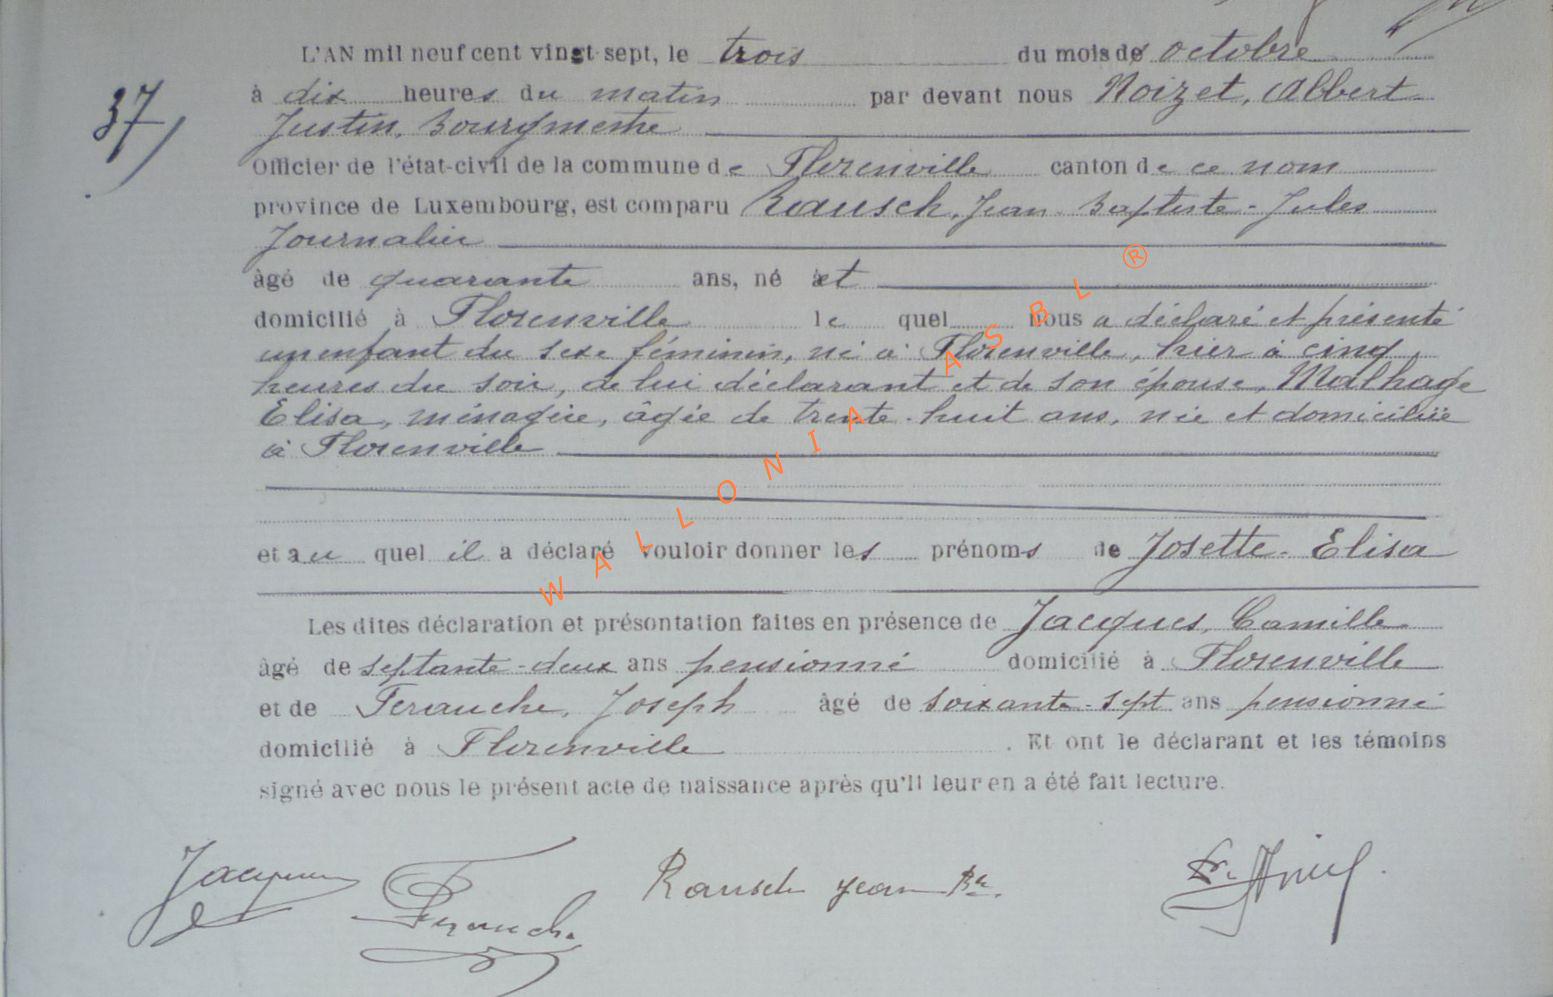 L'AN mil neuf cent vingt-sept, le trois du mois de octobre
37
à dix heures du matin par devant nous Noizet, Albert
Justin, Bourgmestre
Officier de l'état-civil de la commune de Florenville canton de ce nom
province de Luxembourg, est comparu Rausch, Jean-Baptiste-Jules
Journalier
âgé de quarante ans, né et
domicilié à Florenville le quel nous a déclaré et présenté
un enfant du sexe féminin, né à Florenville, hier à cinq
heures du soir, de lui déclarant et de son épouse, Malhage
Elisa, ménagère, âgée de trente-huit ans, née et domiciliée
à Florenville
et au quel il a déclaré vouloir donner les prénoms de Josette-Elisa
Les dites déclaration et présontation faites en présence de Jacques, Camille
âgé de septante-deux ans pensionné domicilié à Florenville
et de Feranche, Joseph âgé de soixante-sept ans pensionné
domicilié à Florenville . Et ont le déclarant et les témoins
signé avec nous le présent acte de naissance après qu'il leur en a été fait lecture.
Jacques Feranche Rausch jean Bte.
WALLONIA ASBL ®